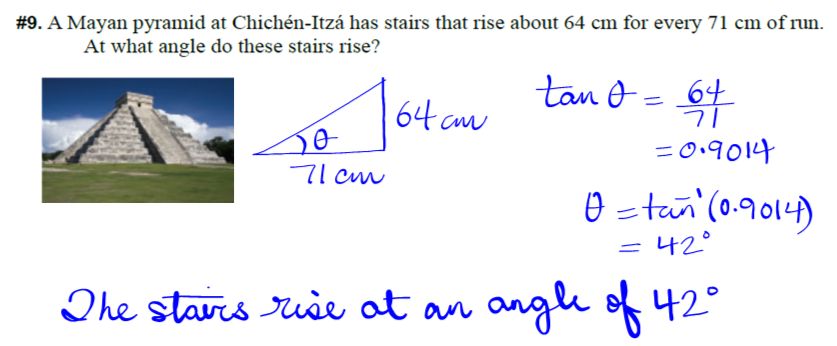 #9. A Mayan pyramid at Chichén-Itzá has stairs that rise about 64 cm for every 71 cm of run.
At what angle do these stairs rise?
θ
64 cm
71 cm
tan θ = 64/71
= 0.9014
θ = tan⁻¹(0.9014)
= 42°
The stairs rise at an angle of 42°